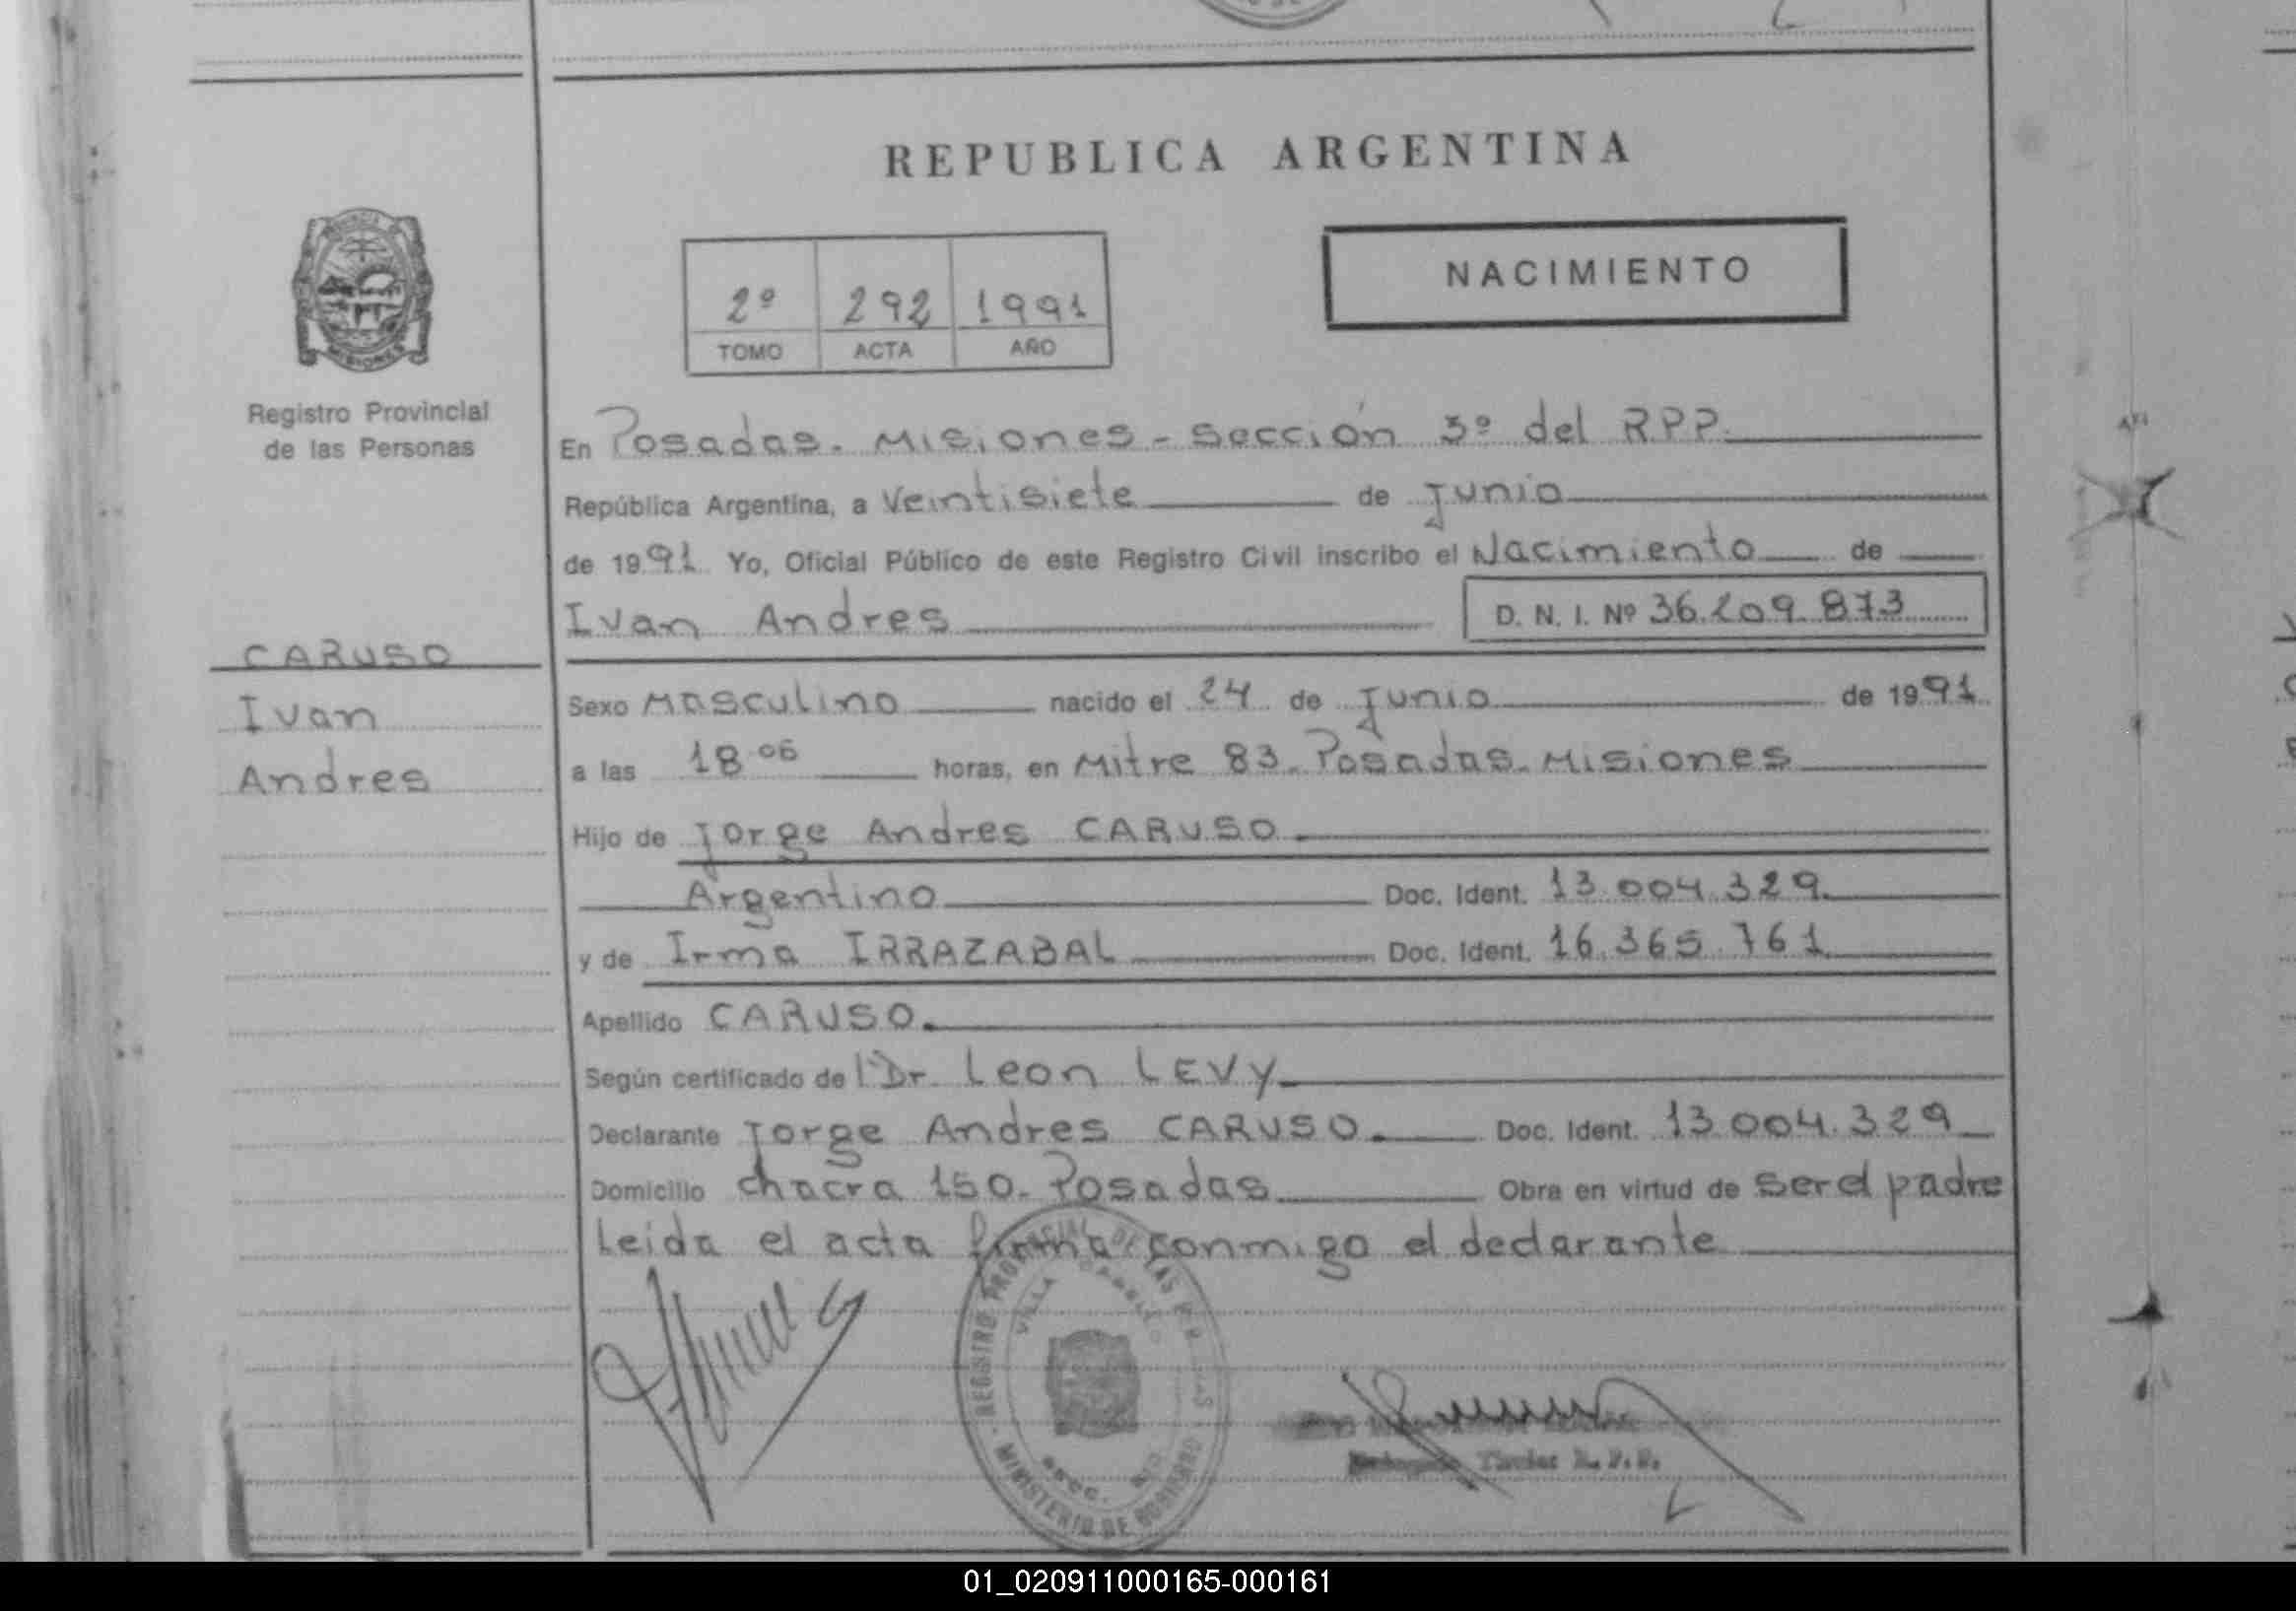 REPUBLICA ARGENTINA
NACIMIENTO
2º 292 1991
TOMO ACTA AÑO
MISIONES
Registro Provincial
de las Personas
En Posadas. Misiones - Sección 3º del RPP.
República Argentina, a Veintisiete de Junio
de 1991 Yo, Oficial Público de este Registro Civil inscribo el Nacimiento de
Ivan Andres D. N. I. Nº 36.209.873
CARUSO
Ivan
Andres
Sexo Masculino nacido el 24 de Junio de 1991
a las 18.06 horas, en Mitre 83. Posadas. Misiones
Hijo de Jorge Andres CARUSO
Argentino Doc. Ident. 13.004.329.
y de Irma IRRAZABAL Doc. Ident. 16.365.761
Apellido CARUSO.
Según certificado del Dr. Leon LEVY
Declarante Jorge Andres CARUSO. Doc. Ident. 13.004.329
Domicilio chacra 150. Posadas Obra en virtud de ser el padre
Leida el acta firma conmigo el declarante
REGISTRO PROVINCIAL DE LAS
VILLA
MINISTERIO DE GOBIERNO
Titular R. P. P.
01_020911000165-000161